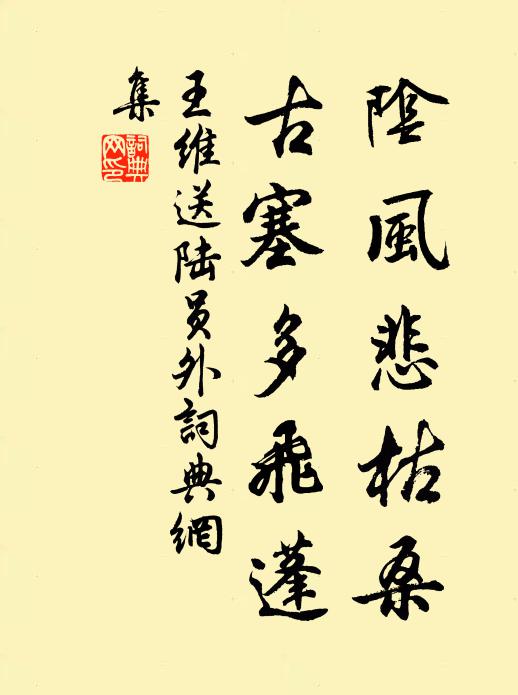 陰風悲枯桑
古塞多飛蓬
王維送陸員外詞典網
集
詞典
网印